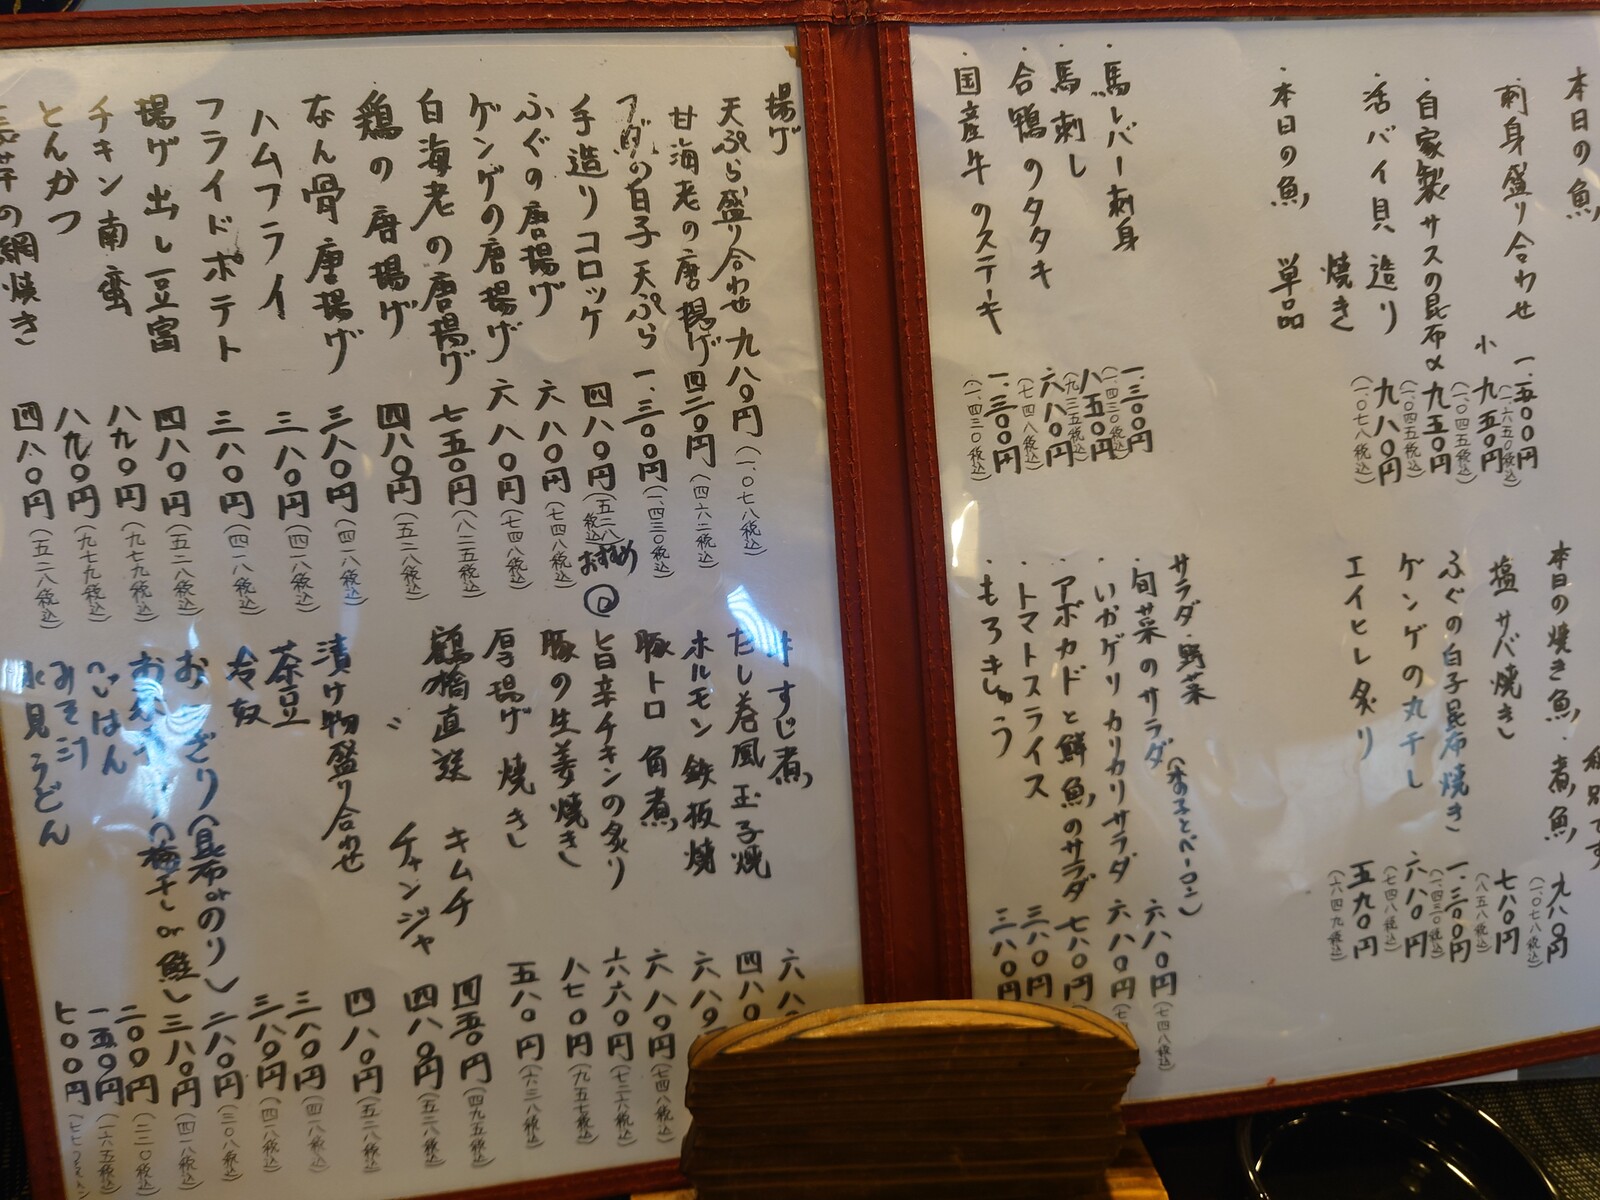 本日の魚
刺身盛り合わせ 一、五〇〇円(一、六五〇税込)
小 九五〇円(一、〇四五税込)
・自家製サスの昆布〆 九五〇円(一、〇四五税込)
・活バイ貝 造り 九八〇円(一、〇七八税込)
焼き
・本日の魚 単品
・馬レバー刺身 一、三〇〇円(一、四三〇税込)
・馬刺し 八五〇円(九三五税込)
・合鴨のタタキ 六八〇円(七四八税込)
・国産牛のステーキ 一、三〇〇円(一、四三〇税込)
本日の焼き魚・煮魚 九八〇円(一、〇七八税込)
塩サバ焼き 七八〇円(八五八税込)
ふぐの白子昆布焼き 一、三〇〇円(一、四三〇税込)
ゲンゲの丸干し 六八〇円(七四八税込)
エイヒレ炙り 五九〇円(六四九税込)
サラダ・野菜
・旬菜のサラダ(木の子とベーコン) 六八〇円(七四八税込)
・いかゲソカリカリサラダ 六八〇円
・アボカドと鮮魚のサラダ 七八〇円
・トマトスライス 三八〇円
・もろきゅう 三八〇円
揚げ
天ぷら盛り合わせ 九八〇円(一、〇七八税込)
甘海老の唐揚げ 四二〇円(四六二税込)
の白子天ぷら 一、三〇〇円(一、四三〇税込)
手造りコロッケ 四八〇円(五二八税込)おすすめ
ふぐの唐揚げ 六八〇円(七四八税込)
ゲンゲの唐揚げ 六八〇円(七四八税込)
白海老の唐揚げ 七五〇円(八二五税込)
鶏の唐揚げ 四八〇円(五二八税込)
なん骨唐揚げ 三八〇円(四一八税込)
ハムフライ 三八〇円(四一八税込)
フライドポテト 三八〇円(四一八税込)
揚げ出し豆富 四八〇円(五二八税込)
チキン南蛮 八九〇円(九七九税込)
とんかつ 八九〇円(九七九税込)
の網焼き 四八〇円(五二八税込)
牛すじ煮
だし巻風玉子焼
ホルモン鉄板焼
豚トロ角煮 六八〇円(七四八税込)
旨辛チキンの炙り 六六〇円(七二六税込)
豚の生姜焼き 八七〇円(九五七税込)
厚揚げ焼き 五八〇円(六三八税込)
鶴橋直送 キムチ 四五〇円(四九五税込)
〃 チャンジャ 四八〇円(五二八税込)
漬け物盛り合わせ 四八〇円(五二八税込)
茶豆 三八〇円(四一八税込)
冷奴 三八〇円(四一八税込)
おにぎり(昆布orのり) 二八〇円(三〇八税込)
お茶漬け(梅干しor鮭) 三八〇円(四一八税込)
ごはん 二〇〇円(二二〇税込)
みそ汁 一五〇円(一六五税込)
氷見うどん 七〇〇円